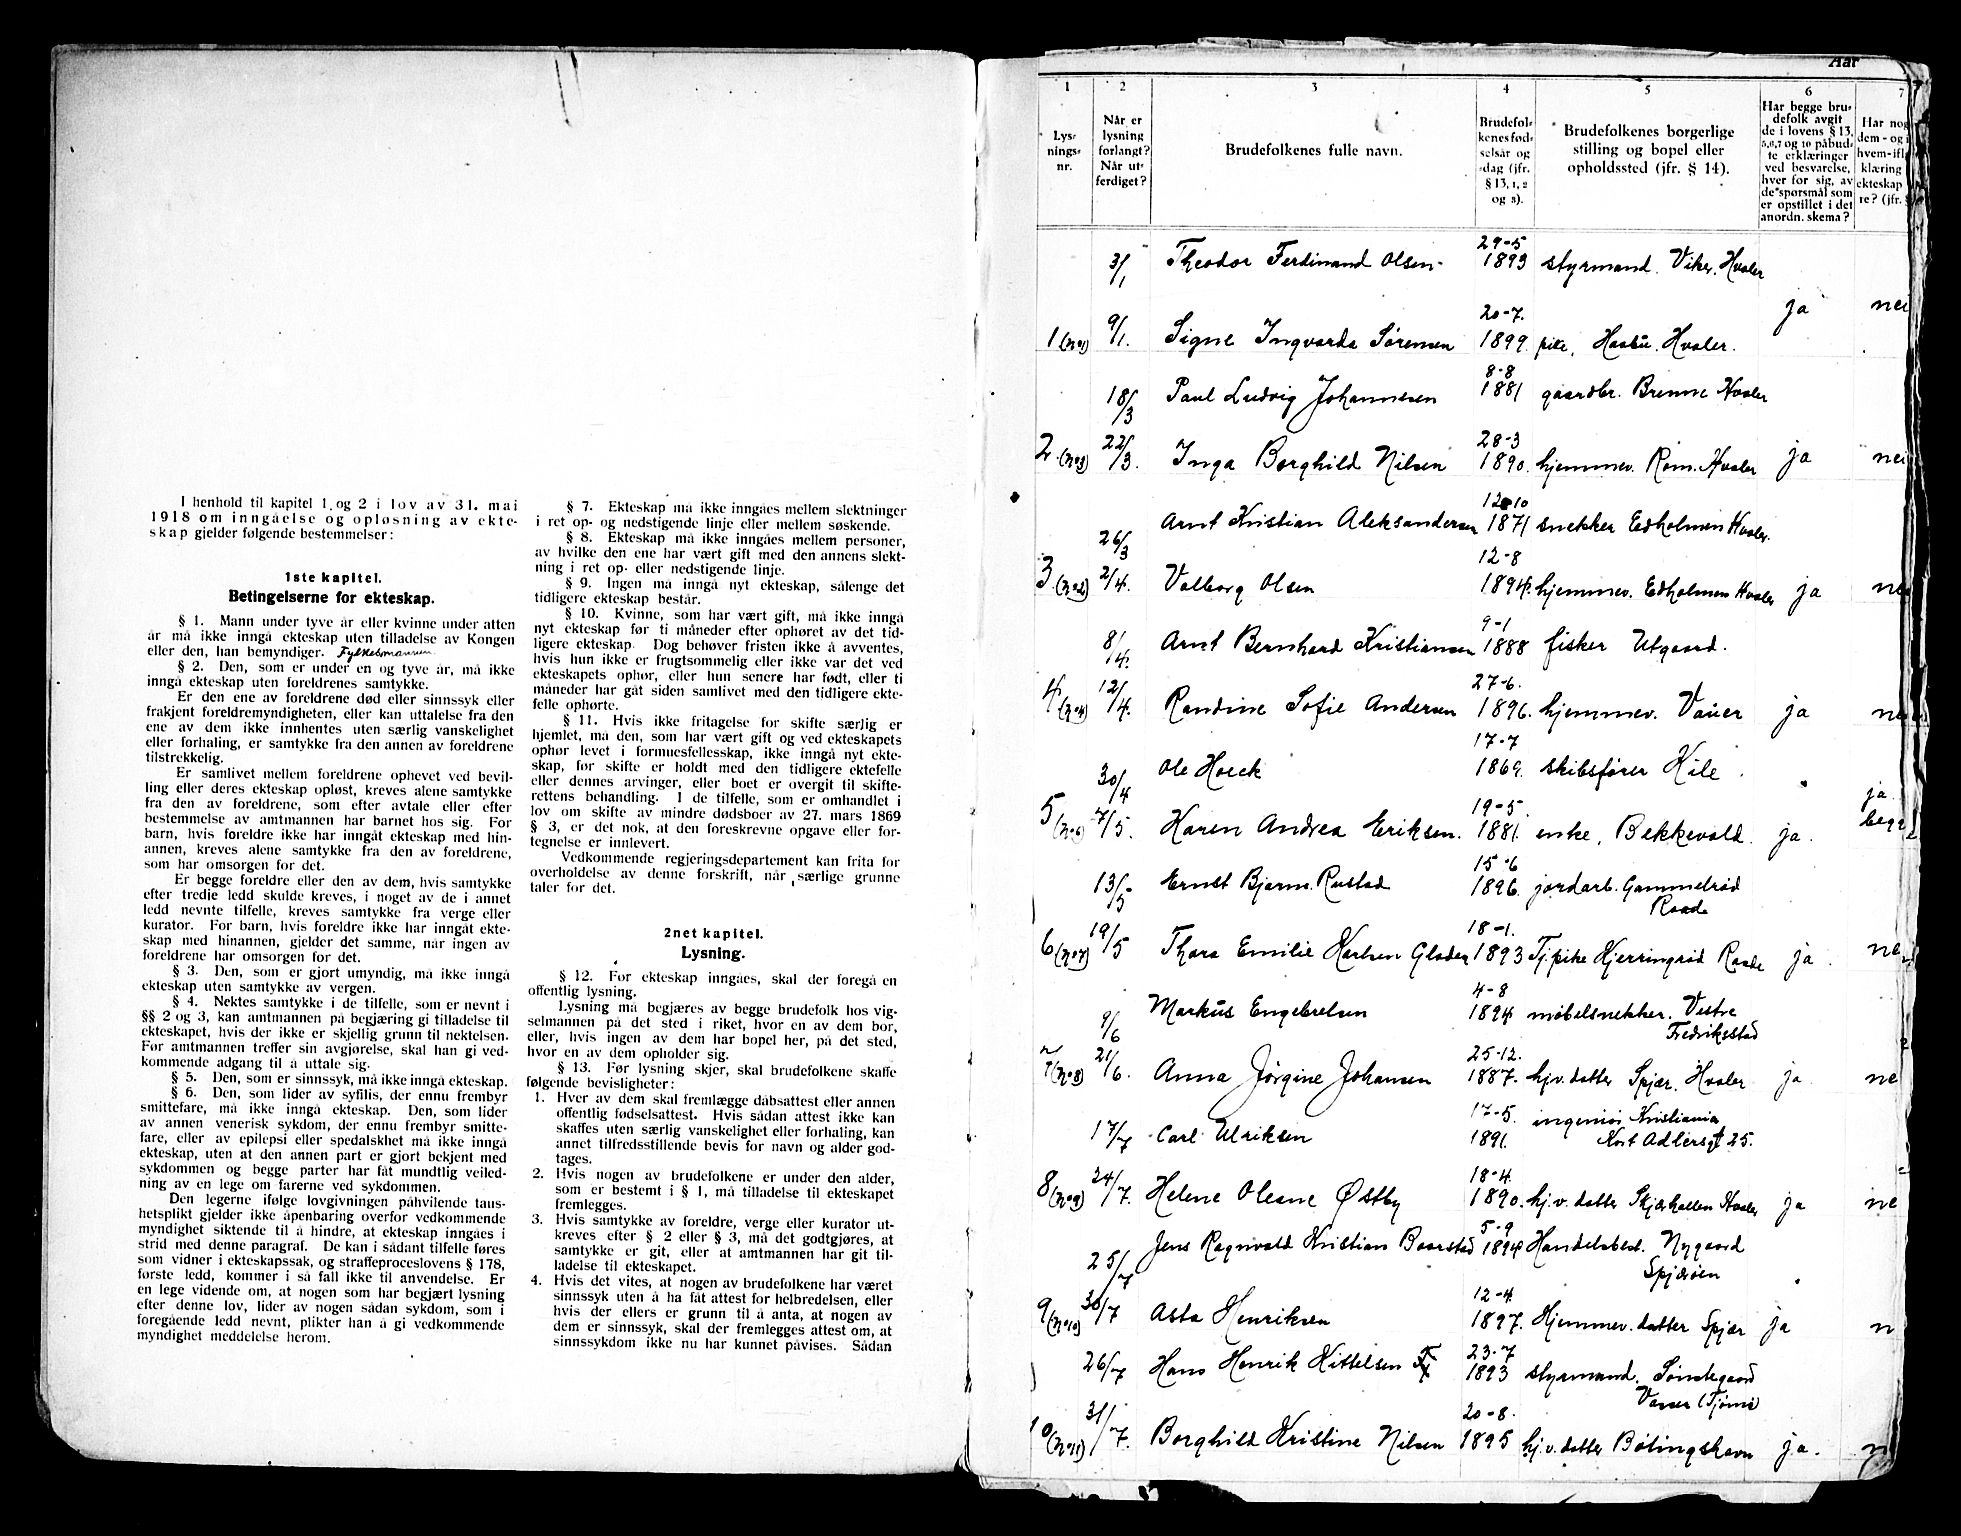 I henhold til kapitel 1 og 2 i lov av 31. mai
1918 om inngåelse og opløsning av ekte-
skap gjelder følgende bestemmelser:
1ste kapitel.
Betingelserne for ekteskap.
§ 1. Mann under tyve år eller kvinne under atten
år må ikke inngå ekteskap uten tilladelse av Kongen
eller den, han bemyndiger. Fylkesmannen
§ 2. Den, som er under en og tyve år, må ikke
inngå ekteskap uten foreldrenes samtykke.
Er den ene av foreldrene død eller sinnssyk eller
frakjent foreldremyndigheten, eller kan uttalelse fra den
ene av dem ikke innhentes uten særlig vanskelighet
eller forhaling, er samtykke fra den annen av foreldrene
tilstrekkelig.
Er samlivet mellem foreldrene ophevet ved bevil-
ling eller deres ekteskap opløst, kreves alene samtykke
fra den av foreldrene, som efter avtale eller efter
bestemmelse av amtmannen har barnet hos sig. For
barn, hvis foreldre ikke har inngåt ekteskap med hin-
annen, kreves alene samtykke fra den av foreldrene,
som har omsorgen for det.
Er begge foreldre eller den av dem, hvis samtykke
efter tredje ledd skulde kreves, i noget av de i annet
ledd nevnte tilfelle, kreves samtykke fra verge eller
kurator. For barn, hvis foreldre ikke har inngåt ekte-
skap med hinannen, gjelder det samme, når ingen av
foreldrene har omsorgen for det.
§ 3. Den, som er gjort umyndig, må ikke inngå
ekteskap uten samtykke av vergen.
§ 4. Nektes samtykke i de tilfelle, som er nevnt i
§§ 2 og 3, kan amtmannen på begjæring gi tilladelse til
ekteskapet, hvis der ikke er skjellig grunn til nektelsen.
Før amtmannen treffer sin avgjørelse, skal han gi ved-
kommende adgang til å uttale sig.
§ 5. Den, som er sinnssyk, må ikke inngå ekteskap.
§ 6. Den, som lider av syfilis, der ennu frembyr
smittefare, må ikke inngå ekteskap. Den, som lider
av annen venerisk sykdom, der ennu frembyr smitte-
fare, eller av epilepsi eller spedalskhet må ikke inngå
ekteskap, uten at den annen part er gjort bekjent med
sykdommen og begge parter har fåt mundtlig veiled-
ning av en lege om farerne ved sykdommen.
Den legerne ifølge lovgivningen påhvilende taus-
hetsplikt gjelder ikke åpenbaring overfor vedkommende
myndighet siktende til å hindre, at ekteskap inngåes i
strid med denne paragraf. De kan i sådant tilfelle føres
som vidner i ekteskapssak, og straffeproceslovens § 178,
første ledd, kommer i så fall ikke til anvendelse. Er
en lege vidende om, at nogen som har begjært lysning
efter denne lov, lider av nogen sådan sykdom, som i
foregående ledd nevnt, plikter han å gi vedkommende
myndighet meddelelse herom.
§ 7. Ekteskap må ikke inngåes mellem slektninger
i ret op- og nedstigende linje eller mellem søskende.
§ 8. Ekteskap må ikke inngåes mellem personer,
av hvilke den ene har vært gift med den annens slekt-
ning i ret op- eller nedstigende linje.
§ 9. Ingen må inngå nyt ekteskap, sålenge det
tidligere ekteskap består.
§ 10. Kvinne, som har vært gift, må ikke inngå
nyt ekteskap før ti måneder efter ophøret av det tid-
ligere ekteskap. Dog behøver fristen ikke å avventes,
hvis hun ikke er frugtsommelig eller ikke var det ved
ekteskapets ophør, eller hun senere har født, eller ti
måneder har gåt siden samlivet med den tidligere ekte-
felle ophørte.
§ 11. Hvis ikke fritagelse for skifte særlig er
hjemlet, må den, som har vært gift og ved ekteskapets
ophør levet i formuesfellesskap, ikke inngå nyt ekte-
skap, før skifte er holdt med den tidligere ektefelle
eller dennes arvinger, eller boet er overgit til skifte-
rettens behandling. I de tilfelle, som er omhandlet i
lov om skifte av mindre dødsboer av 27. mars 1869
§ 3, er det nok, at den foreskrevne opgave eller for-
tegnelse er innlevert.
Vedkommende regjeringsdepartement kan frita for
overholdelse av denne forskrift, når særlige grunne
taler for det.
2net kapitel.
Lysning.
§ 12. Før ekteskap inngåes, skal der foregå en
offentlig lysning.
Lysning må begjæres av begge brudefolk hos vig-
selmannen på det sted i riket, hvor en av dem bor,
eller, hvis ingen av dem har bopel her, på det sted,
hvor en av dem opholder sig.
§ 13. Før lysning skjer, skal brudefolkene skaffe
følgende bevisligheter:
1. Hver av dem skal fremlægge dåbsattest eller annen
offentlig fødselsattest. Hvis sådan attest ikke kan
skaffes uten særlig vanskelighet eller forhaling, kan
annet tilfredsstillende bevis for navn og alder god-
tages.
2. Hvis nogen av brudefolkene er under den alder,
som er bestemt i § 1, må tilladelse til ekteskapet
fremlegges.
3. Hvis samtykke av foreldre, verge eller kurator ut-
kreves efter § 2 eller § 3, må det godtgjøres, at
samtykke er git, eller at amtmannen har git til-
ladelse til ekteskapet.
4. Hvis det vites, at nogen av brudefolkene har været
sinnssyk uten å ha fåt attest for helbredelsen, eller
hvis der ellers er grunn til å anta, at nogen av
dem er sinnssyk, skal der fremlegges attest om, at
sinnssykdom ikke nu har kunnet påvises. Sådan
Aar
1 2 3 4 5 6 7
Lys-
nings-
nr.
Når er
lysning
forlangt?
Når ut-
ferdiget?
Brudefolkenes fulle navn.
Brudefol-
kenes fød-
selsår og
-dag (jfr.
§ 13, 1, 2
og 3).
Brudefolkenes borgerlige
stilling og bopel eller
opholdssted (jfr. § 14).
Har begge bru-
defolk avgit
de i lovens § 13,
5,6,7 og 10 påbud-
te erklæringer
ved besvarelse,
hver for sig, av
de spørsmål som
er opstillet i det
anordn. skema?
Har nog
dem - og i
hvem - ifl.
klæring
ekteskap
re? (jfr. §
3/1 Theodor Ferdinand Olsen 29-5 1893 styrmand. Viker. Hvaler
1 (nº1) 9/1. Signe Ingvarda Sørensen 20-7. 1899. pike, Hvaler. ja nei
18/3 Paul Ludvig Johannesen 8-8 1881 gaardbr. Brenne Hvaler
2 (nº3) 22/3. Inga Borghild Nilsen 28-3 1890. hjemmev. Røm. Hvaler ja nei
26/3 Arnt Kristian Aleksandersen 12-10 1871 snekker Edholmen Hvaler.
3 (nº2) 2/4. Valborg Olsen 12-8 1894. hjemmev. Edholmen Hvaler ja ne
8/4. Arnt Bernhard Kristiansen 9-1 1888 fisker Utgaard.
4 (nº4) 12/4. Randine Sofie Andersen 27-6. 1896. hjemmev. Vauer ja ne
30/4 Ole Hoeck 17-7 1869. skibsfører Kile.
5 (nº6) 7/5. Karen Andrea Eriksen. 19-5. 1881. enke, Bekkevold. ja. ja begge
13/5 Ernst Bjarne Rustad 15-6 1896. jordarb. Gammelrød
Raade
6 (nº7) 19/5 Thora Emilie Karlsen Gloden 18-1. 1893 Tj.pike Kjerringrød Raade ja. ne
9/6 Markus Engebretsen 4-8 1894 møbelsnekker. Vestre
Fredriksstad
7 (nº8) 21/6. Anna Jørgine Johansen 25-12. 1887. hjv. datter Spjær. Hvaler ja ne
17/7 Carl Ulriksen 17-5. 1891. ingeniør Kristiania
Kort Adlersgt 25.
8 (nº9) 24/7. Helene Oleane Østby 18-4. 1890. hj.v. datter Skjærhallen Hvaler ja ne
25/7 Jens Ragnvald Kristian Baarstad 5-9 1894 Handelsbest. Nygaard
Spjærøen
9 (nº10) 30/7 Asta Henriksen 12-4. 1897. Hjemmev. datter Spjær ja n
26/7 Hans Henrik Kittelsen 23-7 1893 styrmand. Søndegaard
10 (nº11) 31/7. Borghild Kristine Nilsen 20-8. 1895 hj.v. datter Bølingshavn ja. n